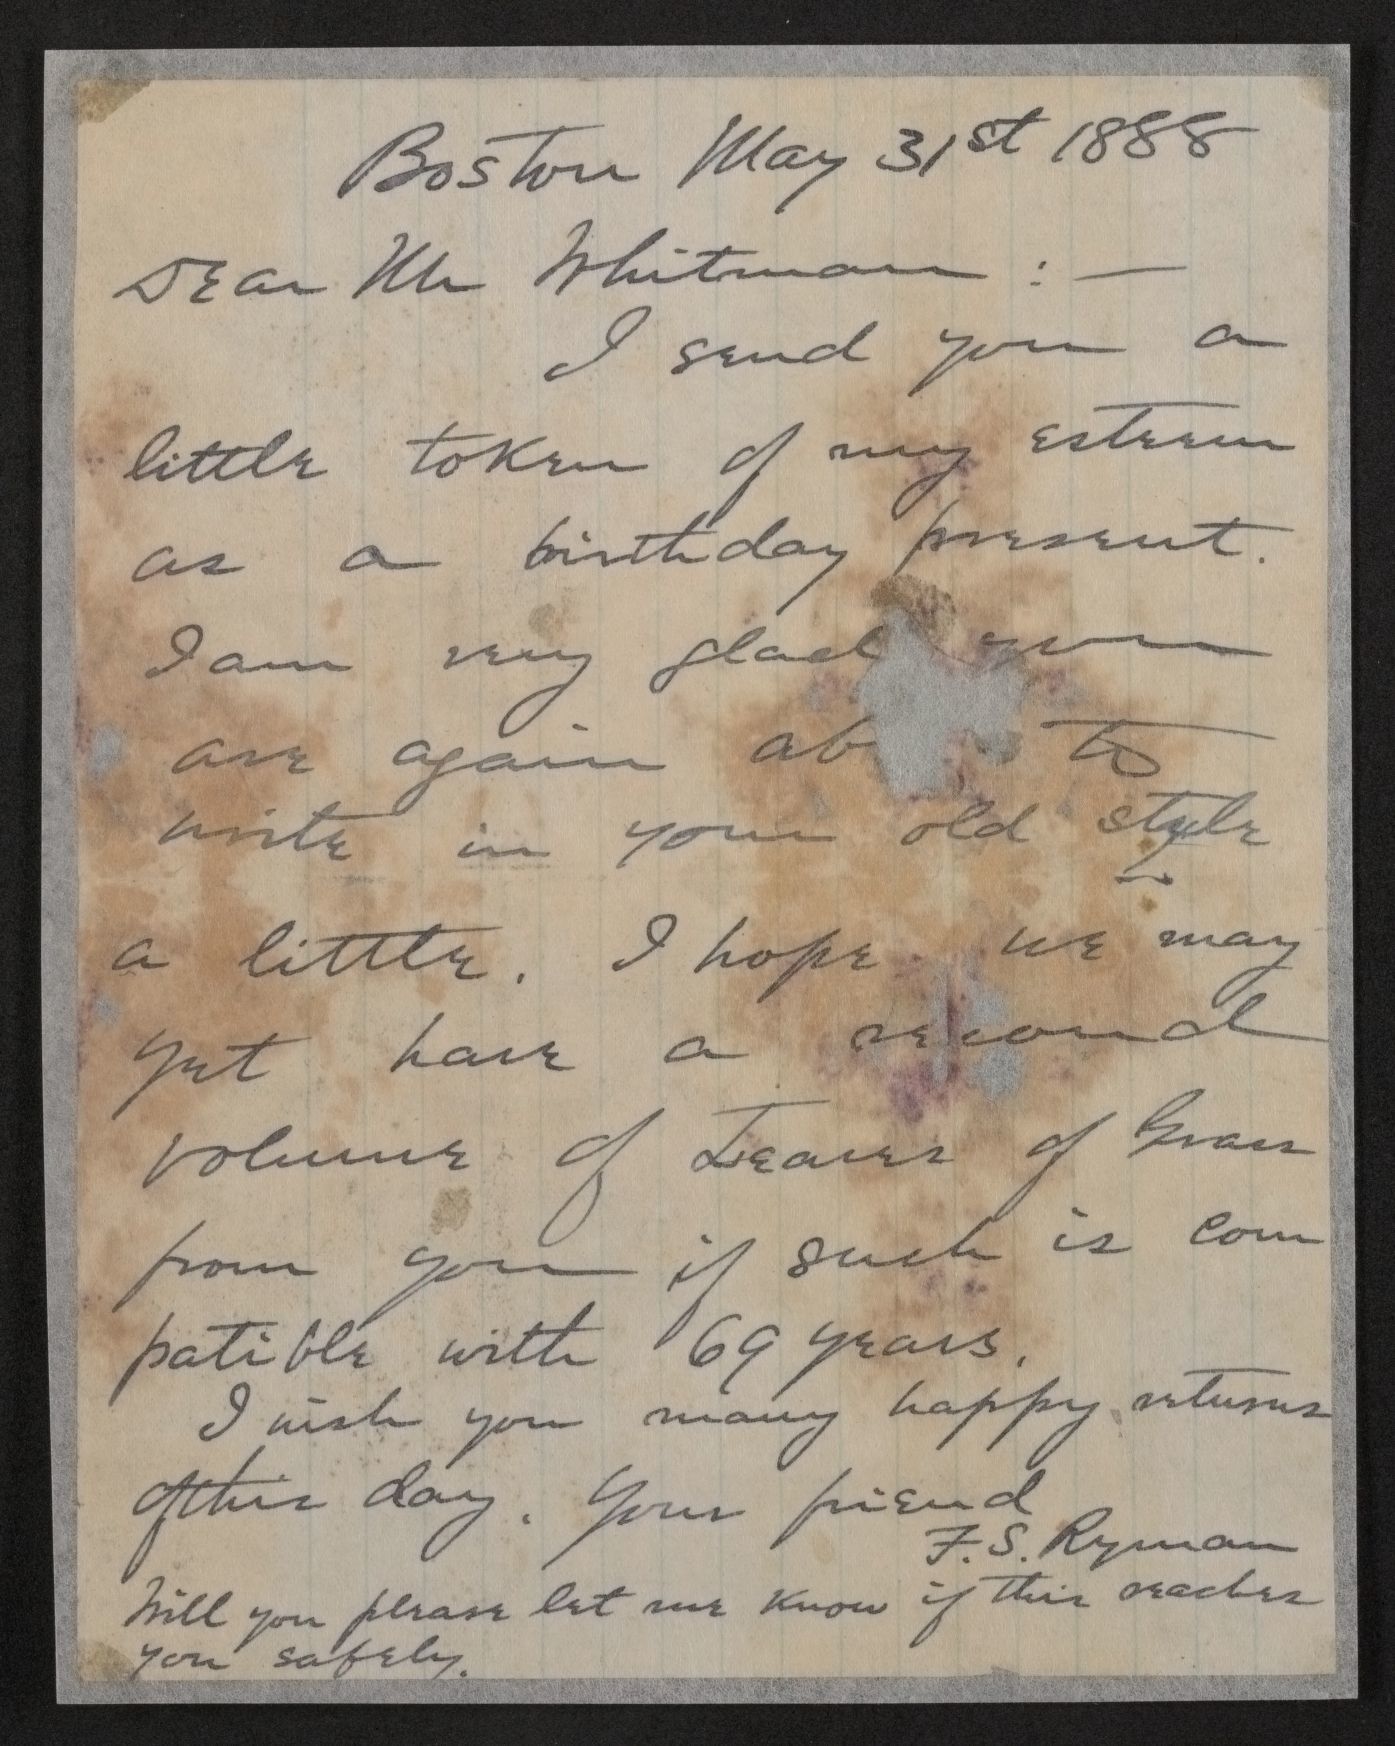 Boston May 31st 1888
Dear Mr Whitman : —
I send you a
little token of my esteem
as a birthday present.
I am very glad you
are again ab to
write in your old style
a little. I hope we may
yet have a second
volume of Leaves of Grass
from you if such is com
patible with 69 years.
I wish you many happy returns
of this day. Your friend
F. S. Ryman
Will you please let me know if this reaches
you safely.